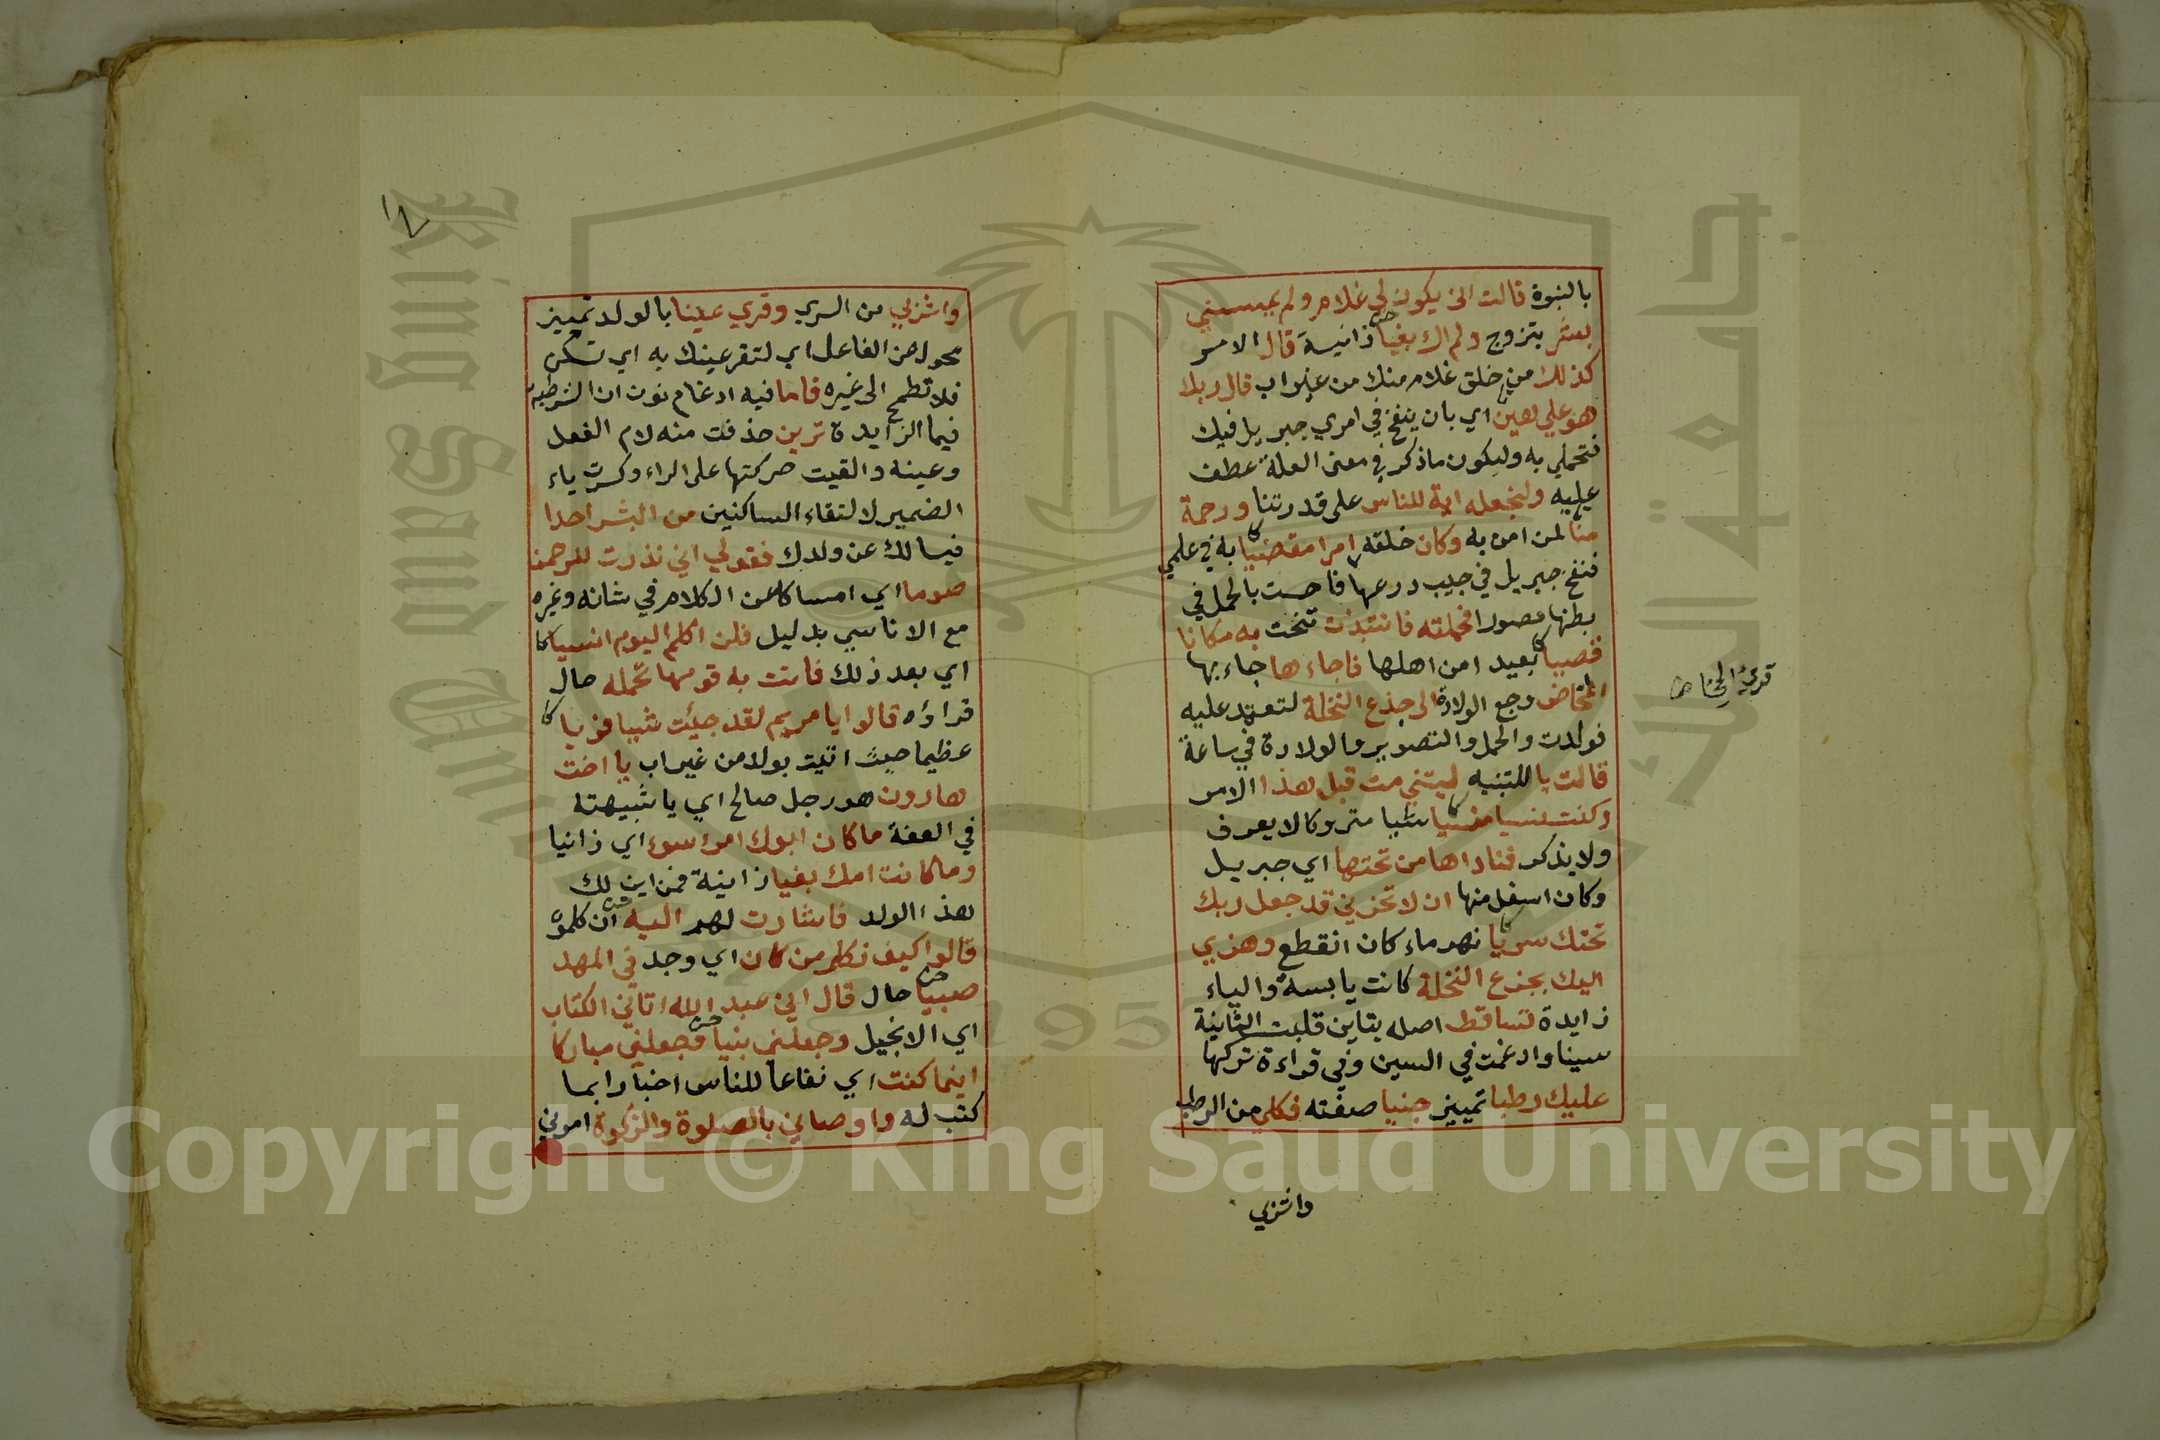 بالنبوة قالت انى يكون لي غلام ولم يمسسني
بشر بتزوج ولم اك بغيا زانية قال الامر
كذلك من خلق غلام منك من غير اب قال ربك
هو علي هين اي بان ينفخ في امري جبريل فيك
فتحملي به وليكون ما ذكر في معنى العلة عطف
عليه ولنجعله اية للناس على قدرتنا ورحمة
منا لمن امن به وكان خلقه امرا مقضيا به في علمي
فنفخ جبريل في جيب درعها فاحست بالحمل في
بطنها مصورا فحملته فانتبذت تنحت به مكانا
قصيا بعيدا من اهلها فاجاءها جاء بها
المخاض وجع الولادة الى جذع النخلة لتعتمد عليه
فولدت والحمل والتصوير والولادة في ساعة
قالت يا للتنبيه ليتني مت قبل هذا الامر
وكنت نسيا منسيا شيا متروكا لا يعرف
ولا يذكر فناداها من تحتها اي جبريل
وكان اسفل منها ان لا تحزني قد جعل ربك
تحتك سريا نهر ماء كان انقطع وهزي
اليك بجذع النخلة كانت يابسة والباء
زايدة تساقط اصله بتاين قلبت الثانية
سينا وادغمت في السين وفي قراءة تركها
عليك رطبا تمييز جنيا صفته فكلي من الرطب
واشربي
واشربي من السري وقري عينا بالولد تمييز
محول من الفاعل اي لتقر عينك به اي تسكن
فلا تطمح الى غيره فاما فيه ادغام نون ان الشرطية
فيما الزايدة ترين حذفت منه لام الفعل
وعينه والقيت حركتها على الراء وكسرت ياء
الضمير لالتقاء الساكنين من البشر احدا
فيسالك عن ولدك فقولي اني نذرت للرحمن
صوما اي امساكا عن الكلام في شانه وغيره
مع الاناسي بدليل فلن اكلم اليوم انسيا
اي بعد ذلك فاتت به قومها تحمله حال
فراؤه قالوا يا مريم لقد جئت شيا فريا
عظيما حيث اتيت بولد من غير اب يا اخت
هارون هو رجل صالح اي يا شبيهته
في العفة ما كان ابوك امرء سوء اي زانيا
وما كانت امك بغيا زانية فمن اين لك
هذا الولد فاشارت لهم اليه ان كلموه
قالوا كيف نكلم من كان اي وجد في المهد
صبيا حال قال اني عبد الله اتاني الكتاب
اي الانجيل وجعلني نبيا وجعلني مباركا
اينما كنت اي نفاعا للناس اخبار بما
كتب له واوصاني بالصلوة والزكوة امرني
King Saud University
جامعة الملك سعود
195
Copyright © King Saud University